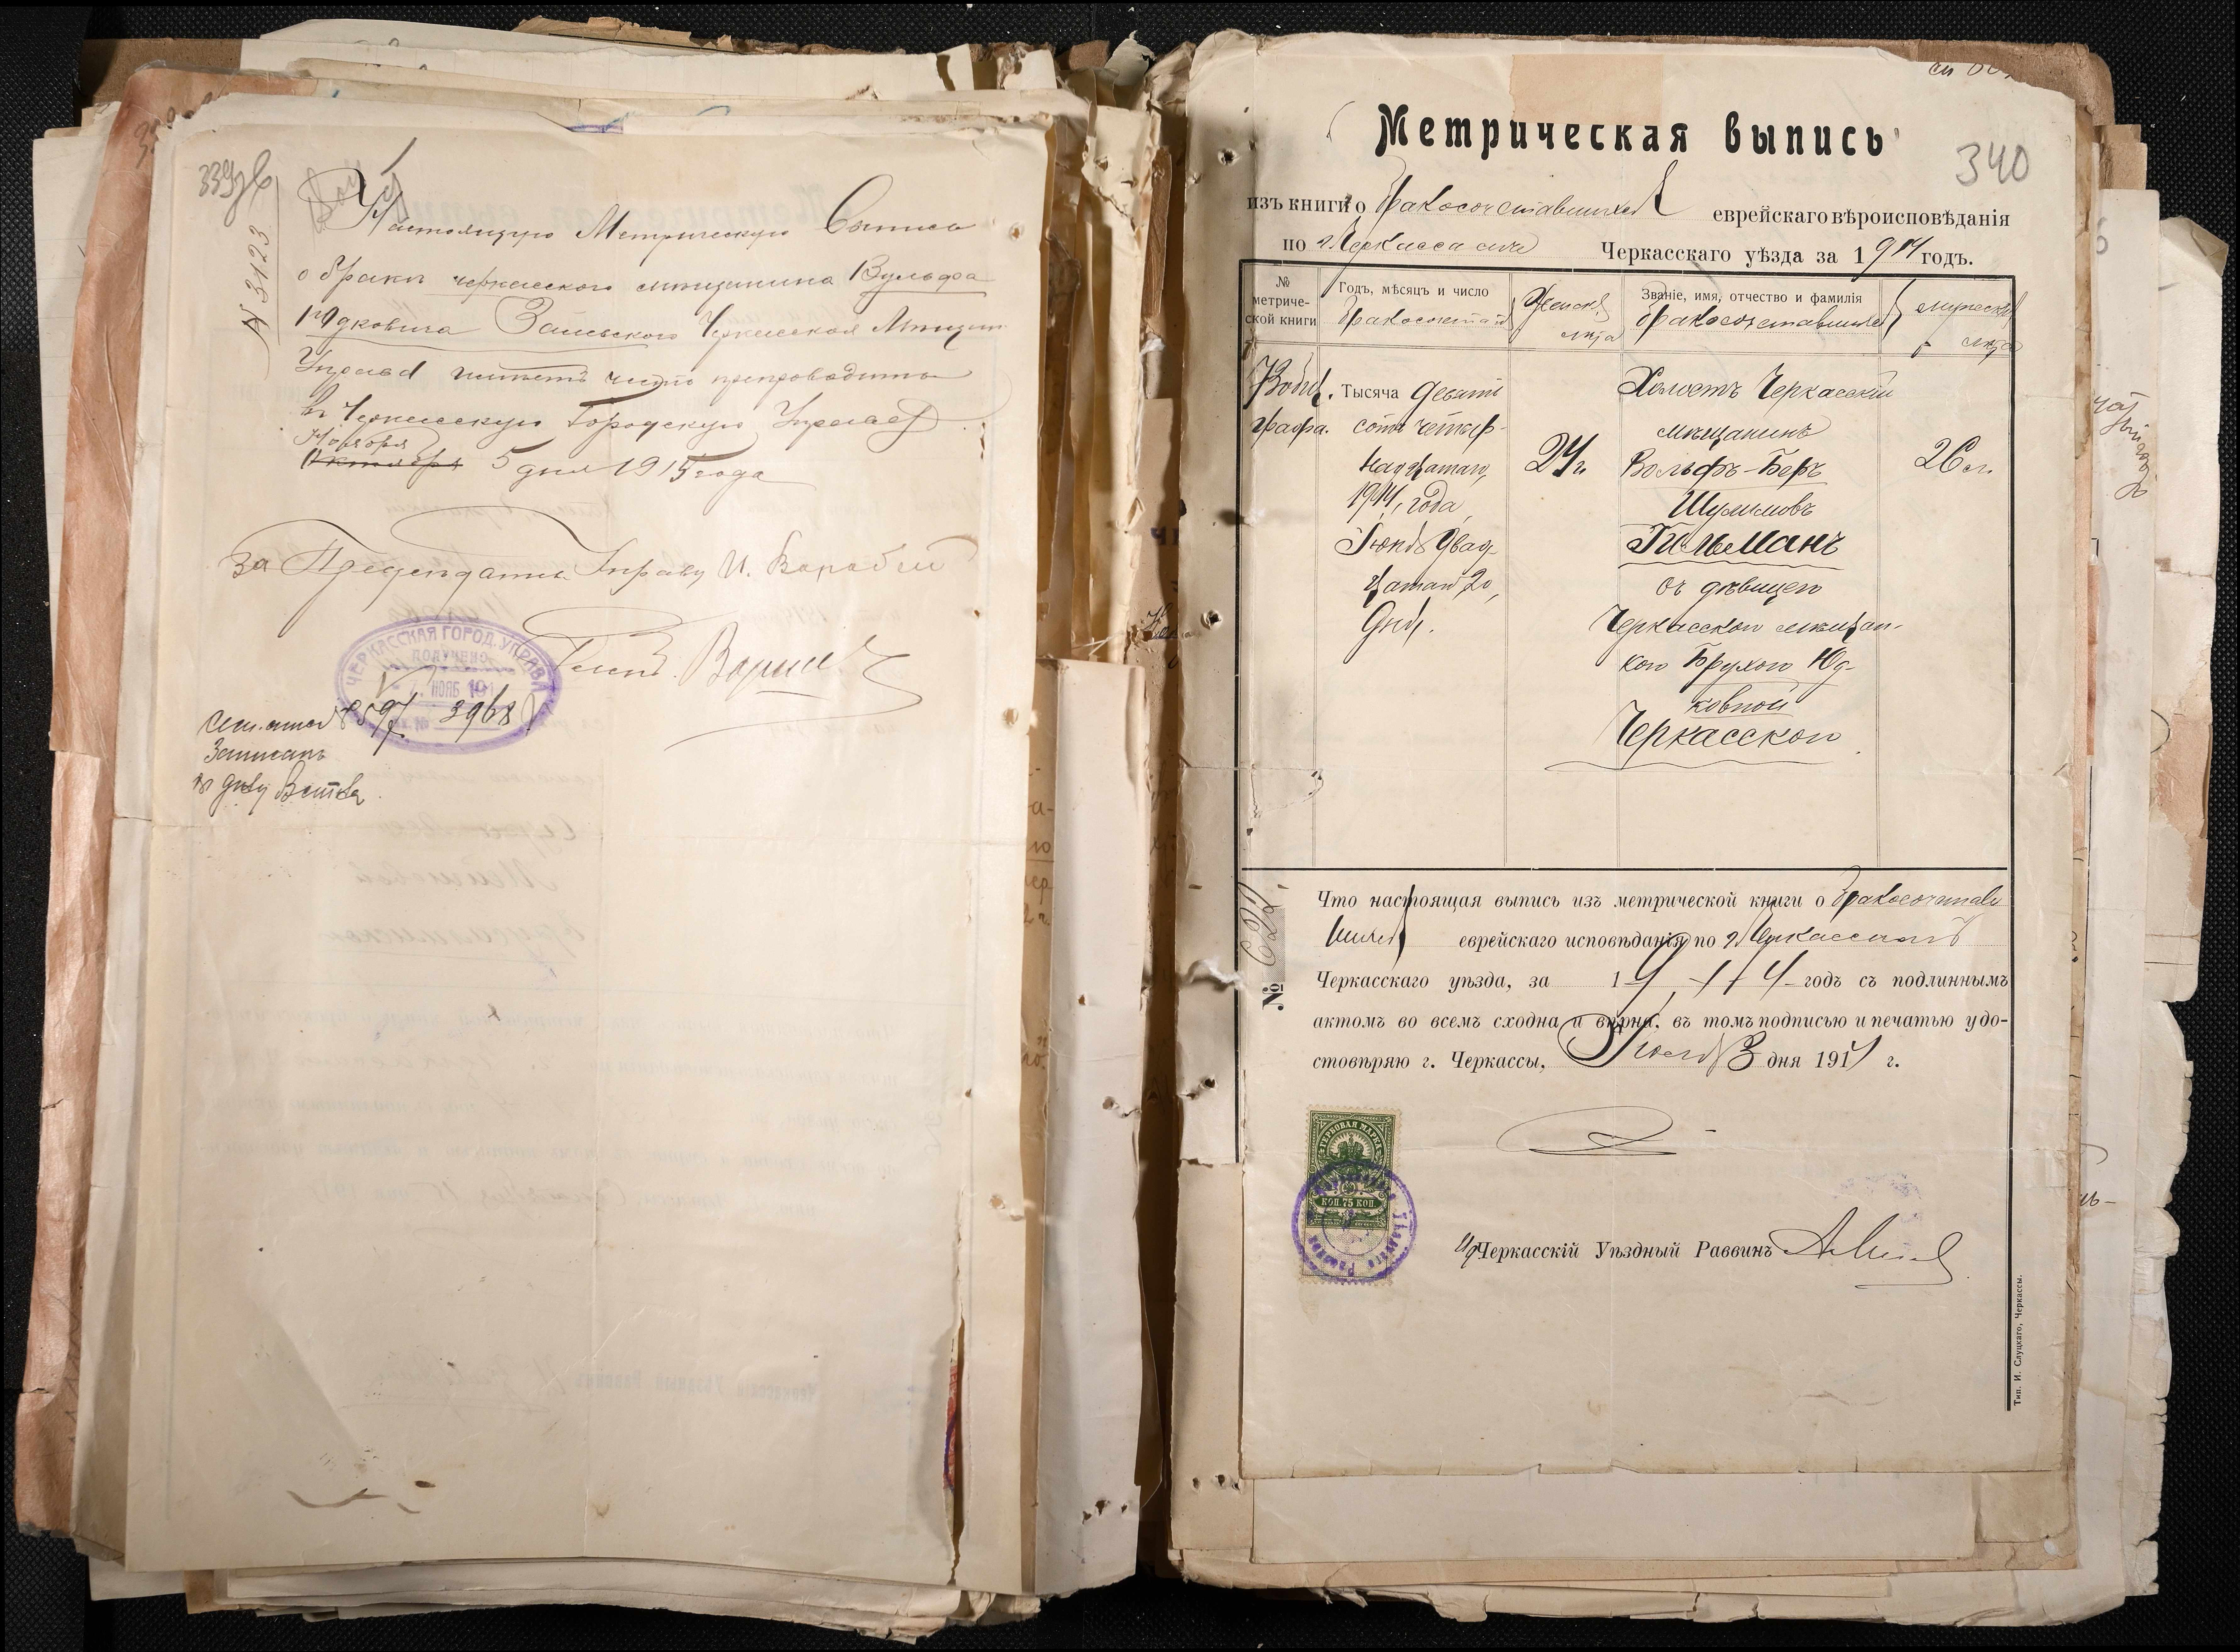 339 зв
№ 3123
Настоящую Метрическую Выпись
о браке черкасского мещанина Вульфа
Юдковича Заславского Черкасская Мещан.
Управа имеет честь препроводить
въ Черкасскую Городскую Управу
Ноября
Октября 5 дня 1915 года
За Председателя Управы И. Воробей
ЧЕРКАССКАЯ ГОРОД. УПРАВА
ПОЛУЧЕНО
НОЯБ 191
Вх. № 3968
8597
Записанъ
340
Метрическая выпись
изъ книги о бракосочетавшихся еврейскаго вѣроисповѣданія
по г. Черкассамъ Черкасскаго уѣзда за 1914 годъ.
№ метриче-
ской книги
Годъ, мѣсяцъ и число
бракосочетанія
Женск.
лѣта
Званіе, имя, отчество и фамилія
бракосочетавшихся
мужеск.
лѣта
графа.
Тысяча девять
сотъ четыр-
надцатаго,
1914, года
Іюня двад-
цатаго, 20,
дня.
24 г.
Холостъ Черкасскій
мѣщанинъ
Вольфъ-Беръ
Шулимовъ
Гильманъ
съ дѣвицею
Черкасскою мѣщан-
кою Брухою Юд-
ковной
Черкасскою
26 л.
№ 622.
Что настоящая выпись изъ метрической книги о бракосочетав-
шихся еврейскаго исповѣданія по г. Черкассамъ
Черкасскаго уѣзда, за 1914 годъ съ подлиннымъ
актомъ во всемъ сходна и вѣрна, въ томъ подписью и печатью удо-
стовѣряю г. Черкассы, Іюля 3 дня 1914 г.
ГЕРБОВАЯ МАРКА
КОП. 75 КОП.
И/д Черкасскій Уѣздный Раввинъ
Тип. И. Слуцкаго, Черкассы.